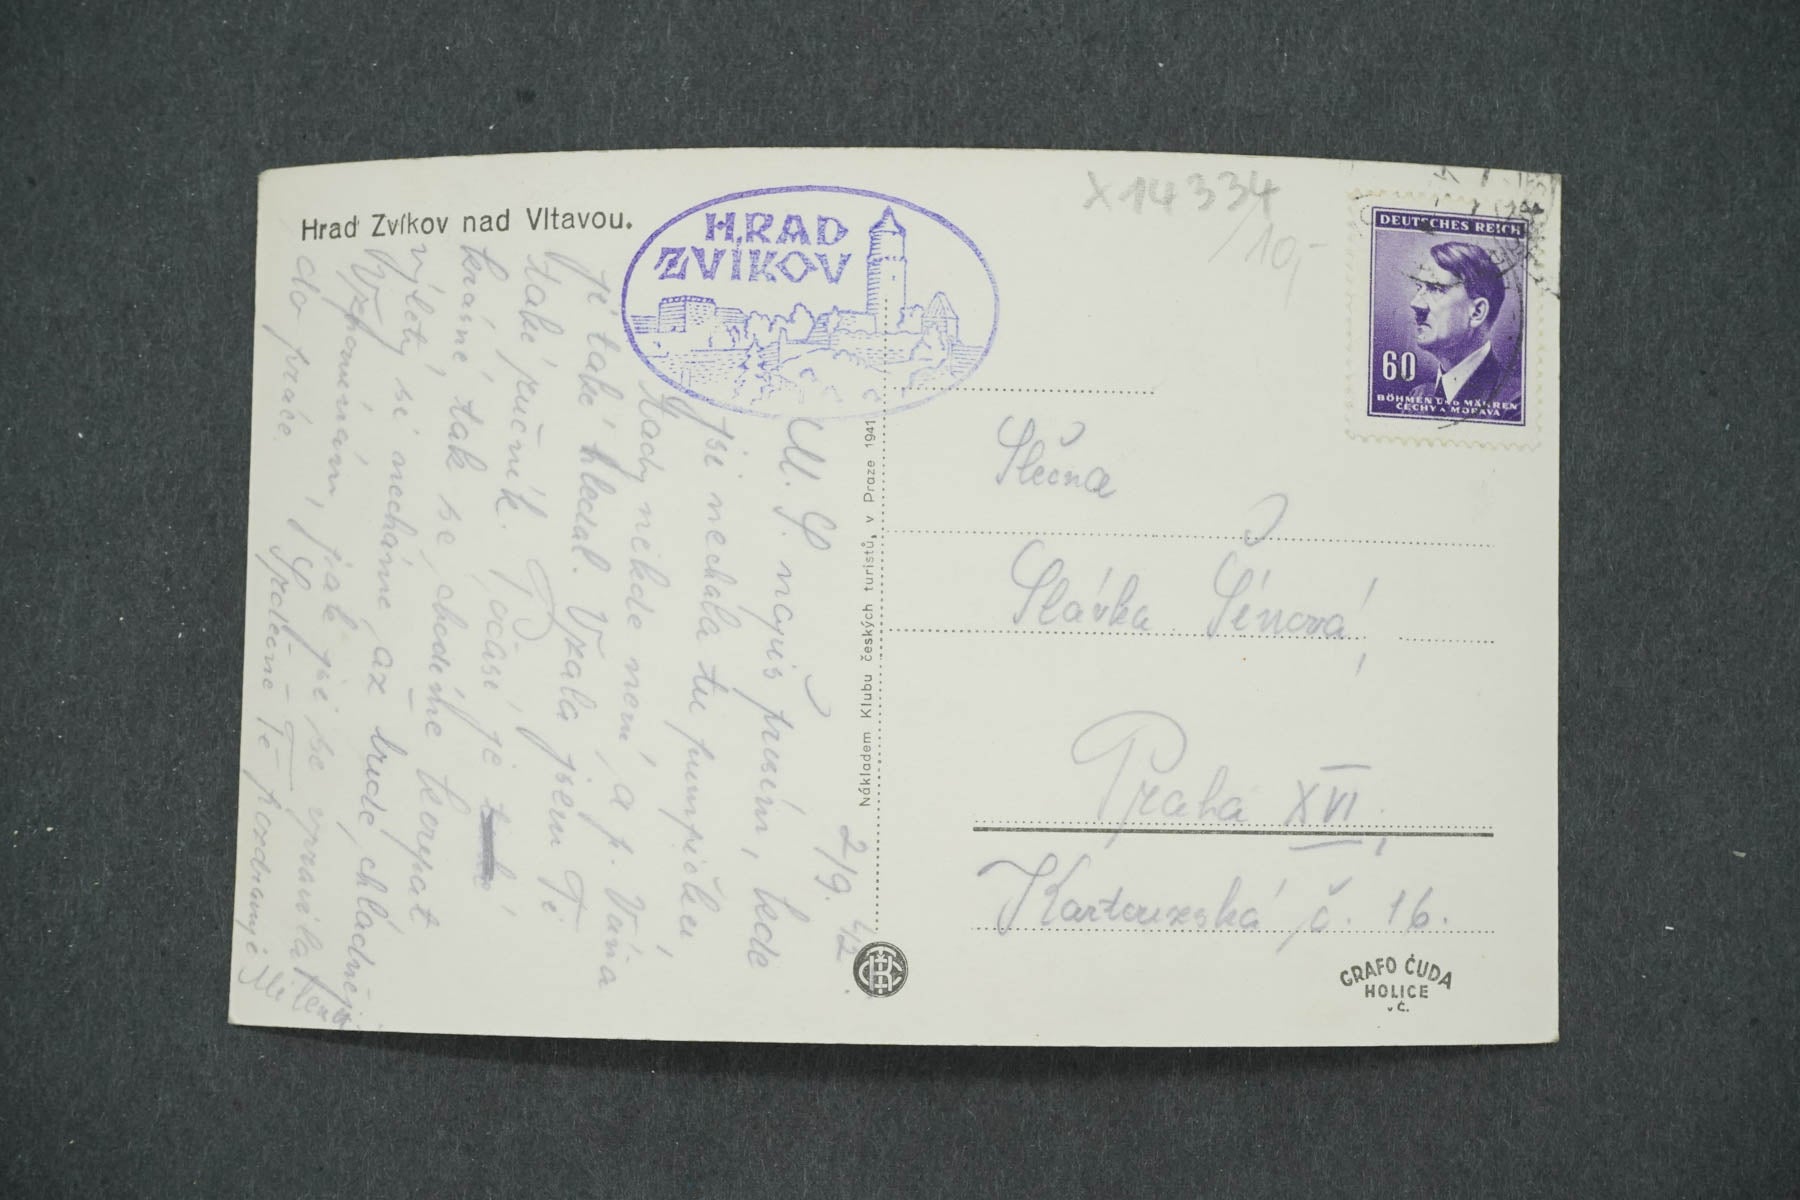 Hrad Zvíkov nad Vltavou.
HRAD
ZVÍKOV
X14334
/10,-
DEUTSCHES REICH
60
BÖHMEN UND MÄHREN
ČECHY A MORAVA
2/9. 42.
M. S. napiš prosím, kde
jsi nechala tu pumpičku
tady nikde není, a p. Vána
ji také hledal. Vzala jsem Ti
také ručník. Počasí je
krásné tak se chodíme koupat
výlety si necháme, až bude chladněji
Vzpomínám, jak jsi se vpravila
do práce. Srdečně Tě pozdravuje
Nákladem Klubu českých turistů, v Praze 1941
Slečna
Slávka Šénová
Praha XVI.
Kartouzská č. 16.
GRAFO ČUDA
HOLICE
v Č.